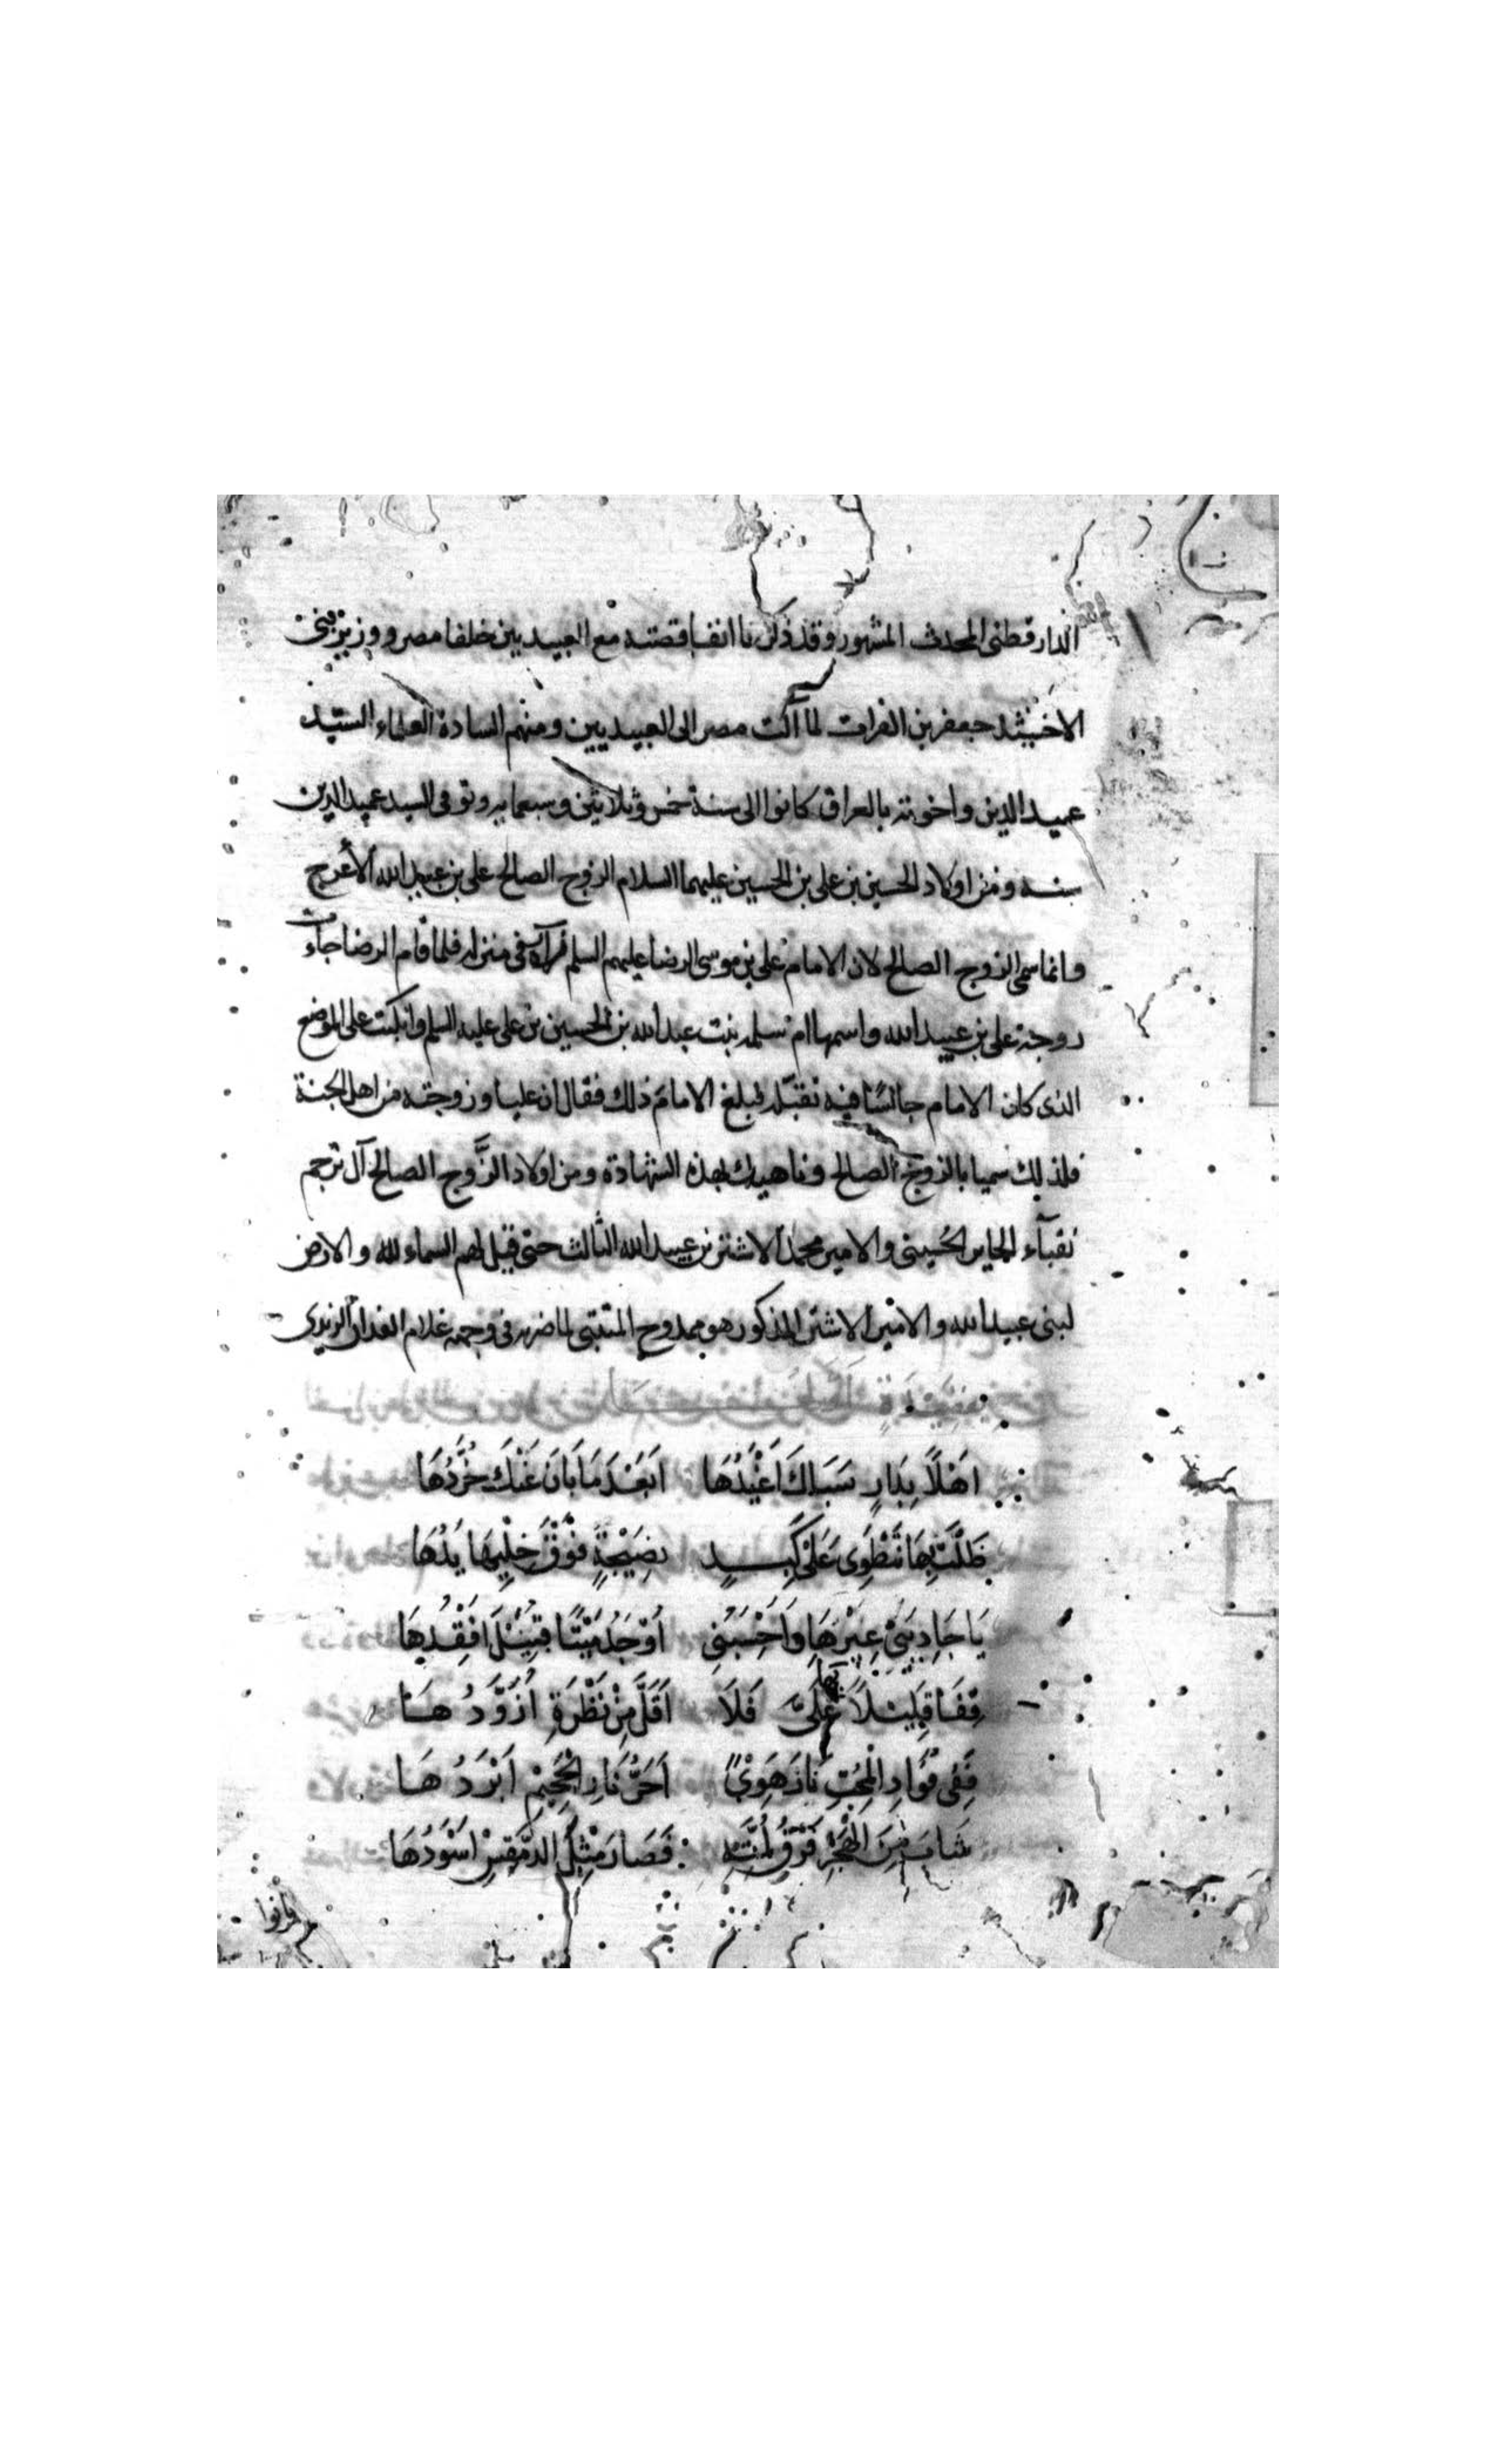 الدارقطنى المحدث المشهور وقد ذكرنا انفا قصته مع العبيديين خلفا مصر ووزير بنى
الاخشيد جعفر بن الفرات لما آلت مصر الى العبيديين ومنهم السادة العلماء السيد
عميد الدين واخوته بالعراق كانوا الى سنة خمس وثلاثين وسبعمايه وتوفى السيد عميد الدين
سنه ومن اولاد الحسين بن على بن الحسين عليهما السلام الزوج الصالح على بن عبيد الله الأعرج
وانما سمى الزوج الصالح لان الامام على بن موسى الرضا عليهم السلم فى منزله فلما قام الرضا جاءت
زوجة على بن عبيد الله واسمها ام سلمه بنت عبد الله بن الحسين بن على عليه السلم وانكبت على الموضع
الذى كان الامام جالسًا فيه تقبّله فبلغ الامامَ ذلك فقال ان عليا وزوجته من اهل الجنة
فلذلك سميا بالزوج الصالح وناهيك بهذه الشهادة ومن اولاد الزَّوج الصالح آل ترجم
نقبآء الحاير الحسينى والامير محمد الاشتر بن عبيد الله الثالث حتى قيل لهم السماء لله والارض
لبنى عبيد الله والامير الاشتر المذكور هو ممدوح المتنبى لما ضربه فى وجهه غلام الزيدى
اَهْلًا بِدَارٍ سَبَاكَ اَغْيَدُهَا اَبَعْدَ مَا بَانَ عَنْكَ خُرَّدُهَا
ظَلْتَ بِهَا تَنْطَوِى عَلَى كَبِدٍ نَضِيْجَةٍ فَوْقَ خِلْبِهَا يَدُهَا
يَا حَادِيَىْ عِيْرِهَا وَاَحْسَبُنِى اُوْجَدُ مَيْتًا قُبَيْلَ اَفْقِدُهَا
قِفَا قَلِيْلًا بها عَلَىَّ فَلَا اَقَلَّ مِنْ نَظْرَةٍ اُزَوَّدُهَا
فَفِى فُؤَادِ الْمُحِبِّ نَارُ هَوًى اَحَرُّ نَارِ الْجَحِيْمِ اَبْرَدُهَا
شَابَ مِنَ الْهَجْرِ فَرْقُ لِمَّتِهِ فَصَارَ مِثْلَ الدِّمَقْسِ اَسْوَدُهَا